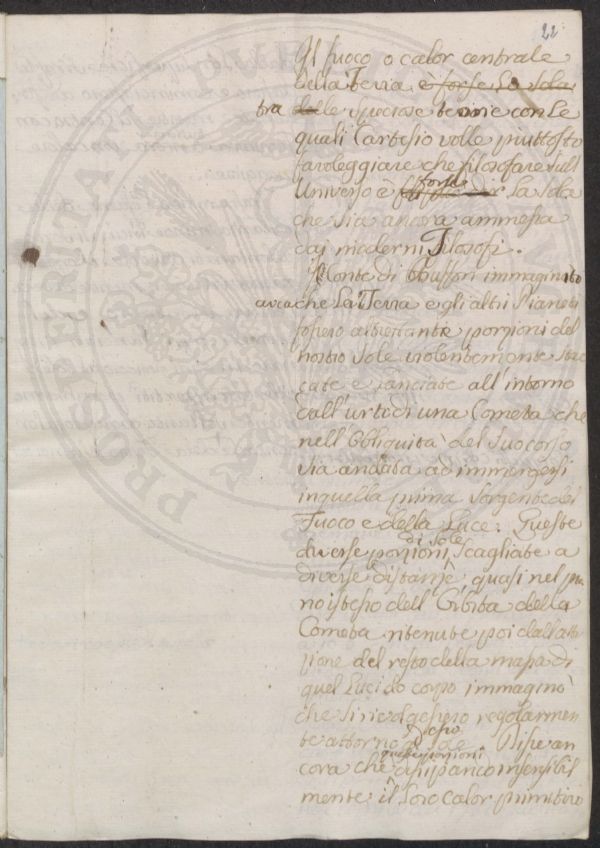 22
Il fuoco o calor centrale
della Terra è forse la sola
tra delle speciose teorie con le
quali Cartesio volle piuttosto
favoleggiare che filosofare sull'
Universo e forse la sola
che sia ancora ammessa
dai moderni Filosofi.
Il Conte di Buffon immaginato
avea che la Terra e gli altri Pianeti
fossero altrettante porzioni del
nostro Sole violentemente stac
cate e lanciate all'intorno
dall'urto di una Cometa che
nell'obbliquità del suo corso
sia andata ad immergersi
in quella prima sorgente del
Fuoco e della Luce. Queste
diverse porzioni di sole scagliate a
diverse distanze, quasi nel pia
no istesso dell'Orbita della
Cometa ritenute poi dall'attra
zione del resto della massa di
quel Lucido corpo immaginò
che si rivolgessero regolarmen
te attorno al Sole. Disse an
cora che queste porzioni insensibil
mente il loro calor primitivo
PROSPERITATI PUBLICAE